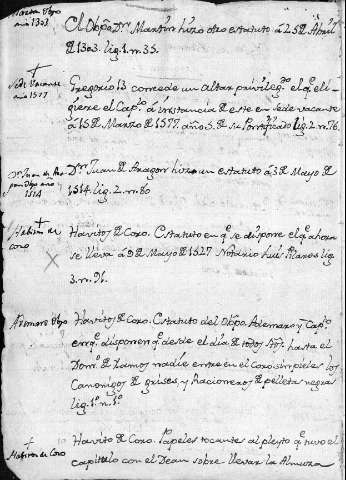 Martin Obpo
año 1303
El Obpo. Dn. Martin hizo otro estatuto á 25 de Abril
de 1303. lig. 1. n. 35.
Sede Vacante
año 1577
Gregorio 13 concede un Altar privilego. el q. eli-
giere el Capo. á instancia de este en Sede vacante
á 15 de Marzo de 1577. año 5. de su Pontificado lig. 2. n. 76.
Dn. Juan de Ara
gon Obpo año
1514
Dn. Juan de Aragon hizo un estatuto á 3 de Mayo de
1514. lig. 2. n. 80
Habitos de
coro
Havitos de Coro. Estatuto en q. se dispone el q. ahora
se lleva á 9 de Mayo de 1527 Notario Luis Pilares lig.
3. n. 91.
Ademaro Obpo
Havitos de Coro. Estatuto del Obpo. Ademaro y Capo.
en q. disponen q. desde el dia de todos Stos. hasta el
Domo. de Ramos nadie entre en el Coro sin pieles los
Canonigos de grises, y Racioneros de pelleta negras
lig. 1o. n. 1o.
Habitos de Coro
Havito de Coro. Papeles tocantes al pleyto q. tuvo el
capitulo con el Dean sobre llevar la Almuza